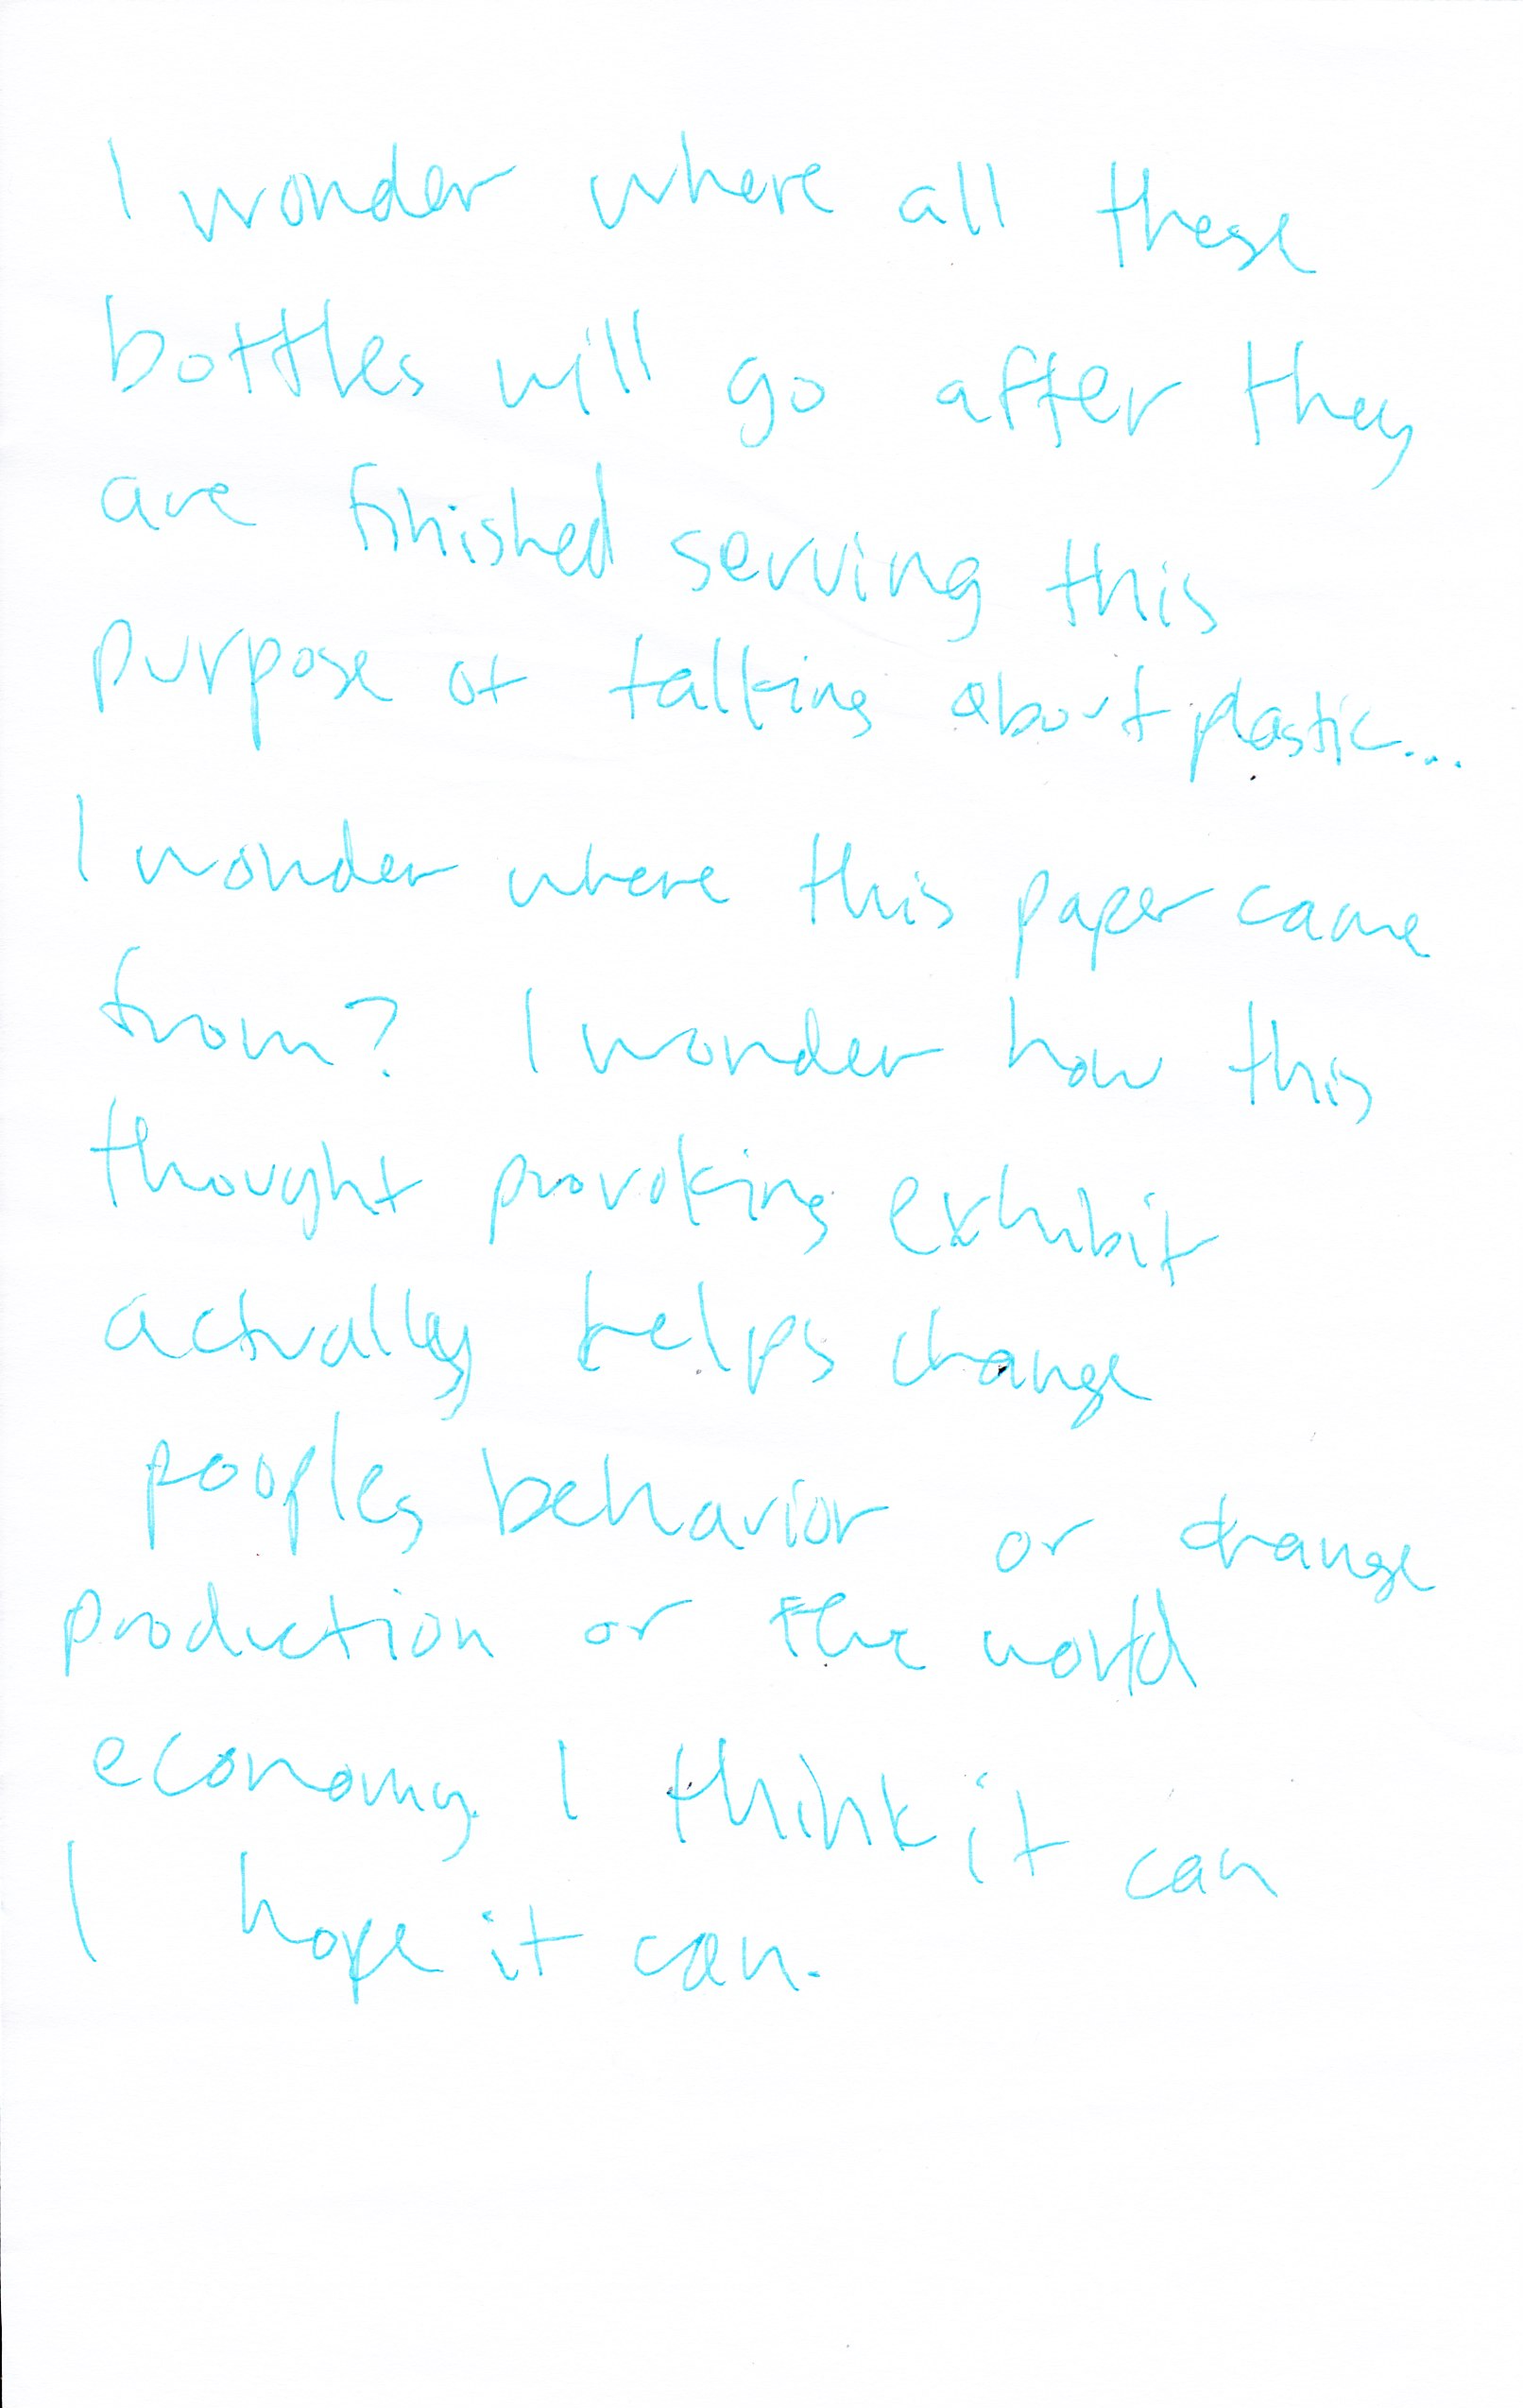 I wonder where all these
bottles will go after they
are finished serving this
purpose of talking about plastic...
I wonder where this paper came
from? I wonder how this
thought provoking exhibit
actually helps change
peoples behavior or change
production or the world
economy. I think it can
I hope it can.